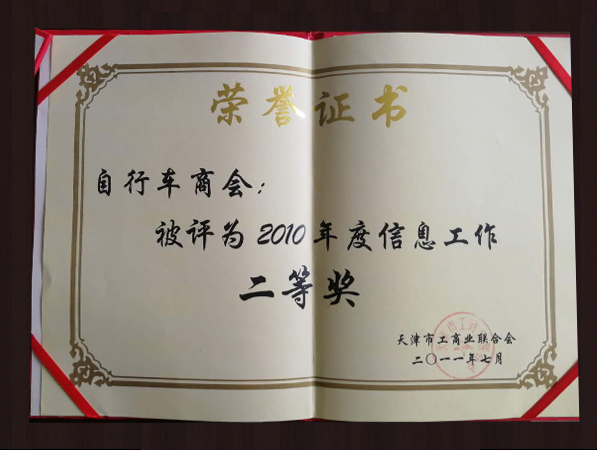 荣誉证书
自行车商会：
被评为2010年度信息工作
二等奖
天津市工商业联合会
二〇一一年七月